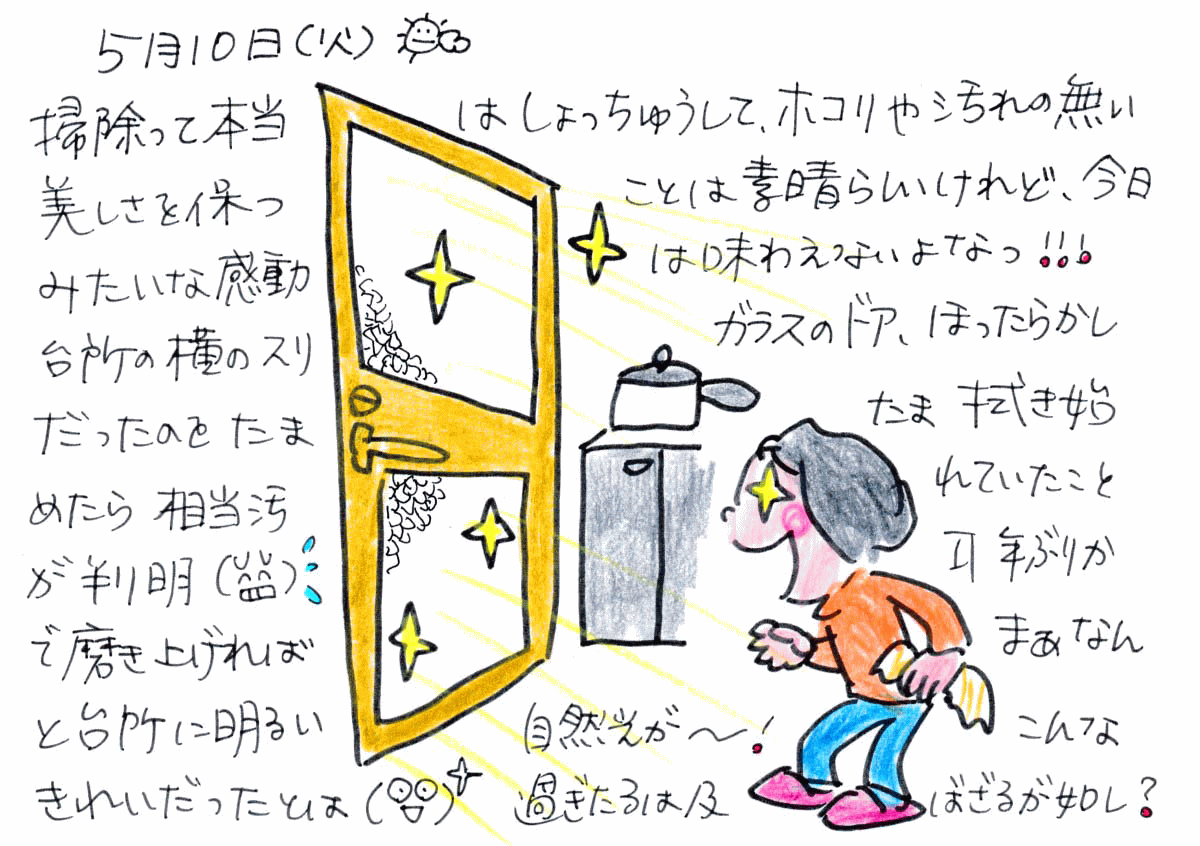 5月10日(火)
掃除って本当 はしょっちゅうして、ホコリや汚れの無い
美しさを保つ ことは素晴らしいけれど、今日
みたいな感動 は味わえないよなっ!!!
台所の横のスリ ガラスのドア、ほったらかし
だったのを たま たま 拭き始
めたら 相当汚 れていたこと
が判明 年ぶりか
で磨き上げれば まぁなん
と台所に明るい 自然光が〜! こんな
きれいだったとは 過ぎたるは及 ばざるが如し?